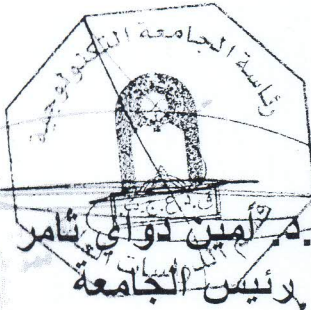 رئاسة الجامعة التكنولوجية
م. أمين دواي ثامر
رئيس الجامعة